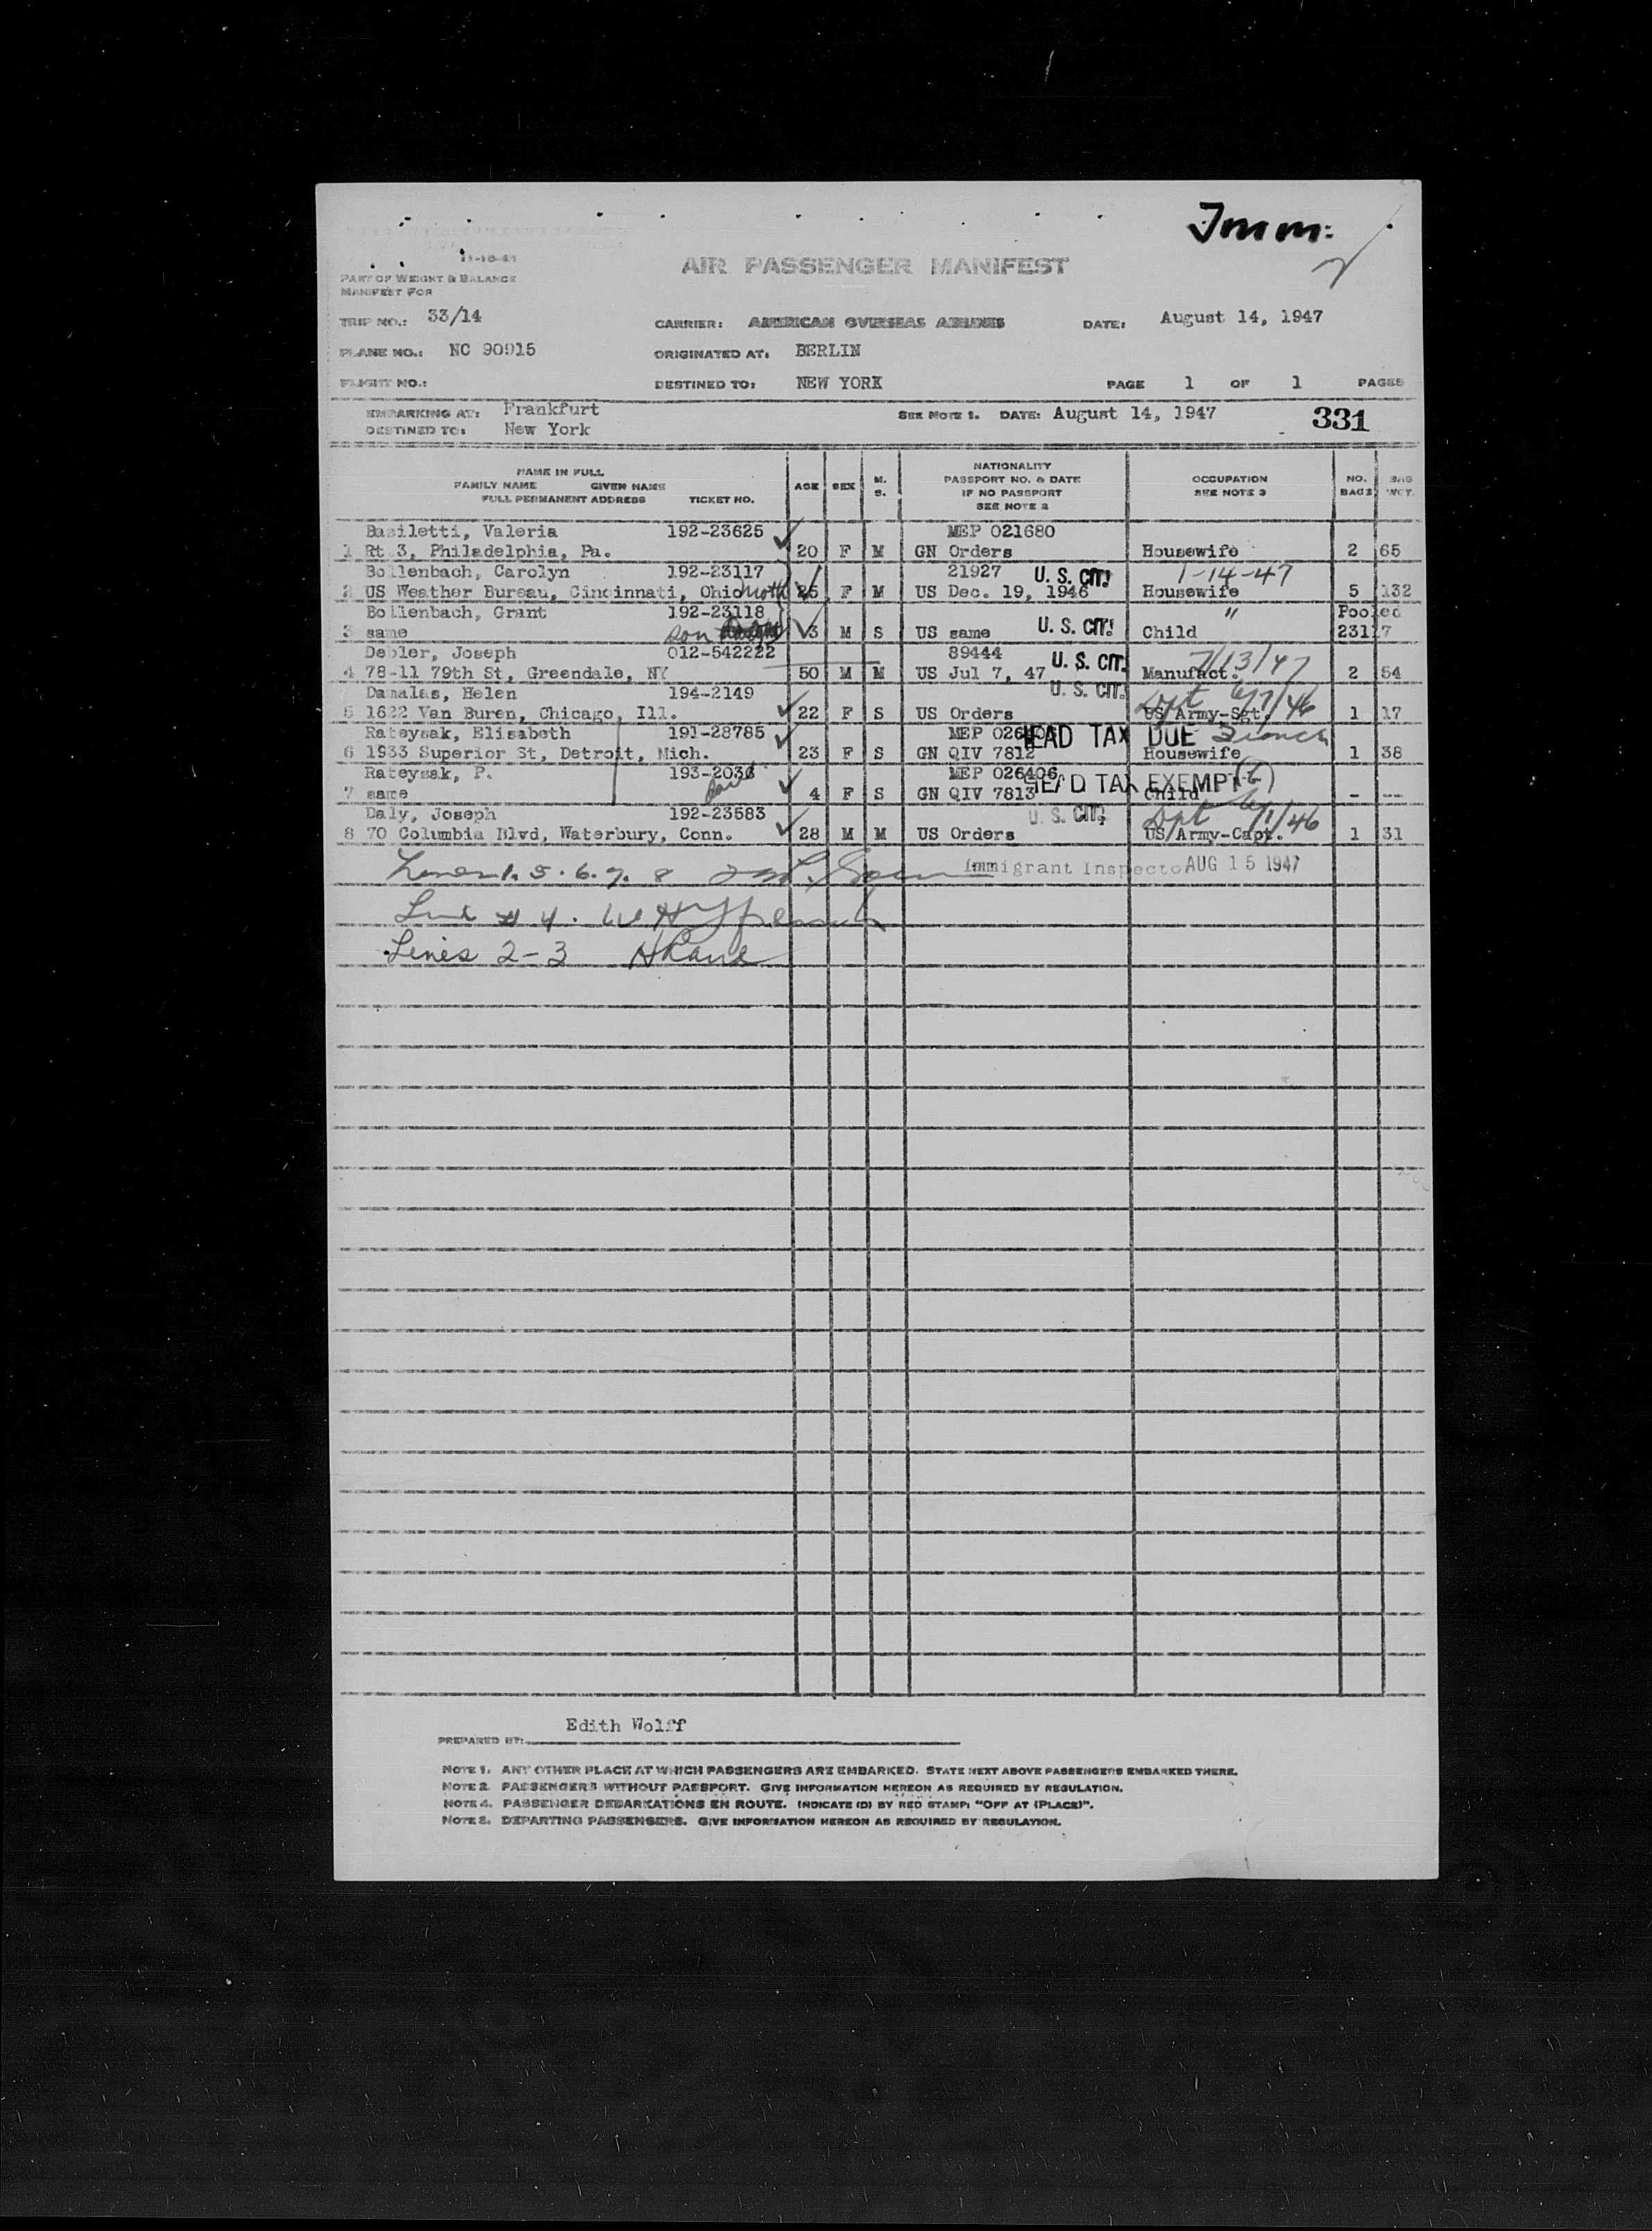 Imm:
11-18-45
PART OF WEIGHT & BALANCE
MANIFEST FOR
AIR PASSENGER MANIFEST
TRIP NO.: 33/14 CARRIER: AMERICAN OVERSEAS AIRLINES DATE: August 14, 1947
PLANE NO.: NC 90915 ORIGINATED AT: BERLIN
FLIGHT NO.: DESTINED TO: NEW YORK PAGE 1 OF 1 PAGES
EMBARKING AT: Frankfurt SEE NOTE 1. DATE: August 14, 1947 331
DESTINED TO: New York
NAME IN FULL
FAMILY NAME GIVEN NAME
FULL PERMANENT ADDRESS TICKET NO. AGE SEX M. S. NATIONALITY PASSPORT NO. & DATE IF NO PASSPORT SEE NOTE 2 OCCUPATION SEE NOTE 3 NO. BAGS BAG WGT.
Basiletti, Valeria 192-23625 MEP 021680
1 Rt 3, Philadelphia, Pa. 20 F M GN Orders Housewife 2 65
Bollenbach, Carolyn 192-23117 21927 U. S. CIT. 1-14-47
2 US Weather Bureau, Cincinnati, Ohio moth 25 F M US Dec. 19, 1946 Housewife 5 132
Bollenbach, Grant 192-23118 " Pooled
3 same son 3 M S US same U. S. CIT. Child 23117
Debler, Joseph 012-542222 89444 U. S. CIT. 7/13/47
4 78-11 79th St, Greendale, NY 50 M M US Jul 7, 47 Manufact. 2 54
Damalas, Helen 194-2149 U. S. CIT. Dpt 6/7/46
5 1622 Van Buren, Chicago, Ill. 22 F S US Orders US Army-Sgt. 1 17
Rateysak, Elisabeth 191-28785 MEP 026405 HEAD TAX DUE
6 1933 Superior St, Detroit, Mich. 23 F S GN QIV 7812 Housewife 1 38
Rateysak, P. 193-2036 MEP 026406 HEAD TAX EXEMPT
7 same 4 F S GN QIV 7813 Child - --
Daly, Joseph 192-23583 U. S. CIT. Dpt 6/1/46
8 70 Columbia Blvd, Waterbury, Conn. 28 M M US Orders US Army-Capt. 1 31
Lines 1. 5. 6. 7. 8 Immigrant Inspector AUG 15 1947
Line # 4.
Lines 2-3
Edith Wolff
PREPARED BY:
NOTE 1. ANY OTHER PLACE AT WHICH PASSENGERS ARE EMBARKED. STATE NEXT ABOVE PASSENGERS EMBARKED THERE.
NOTE 2. PASSENGERS WITHOUT PASSPORT. GIVE INFORMATION HEREON AS REQUIRED BY REGULATION.
NOTE 4. PASSENGER DEBARKATIONS EN ROUTE. INDICATE (D) BY RED STAMP: "OFF AT (PLACE)".
NOTE 3. DEPARTING PASSENGERS. GIVE INFORMATION HEREON AS REQUIRED BY REGULATION.